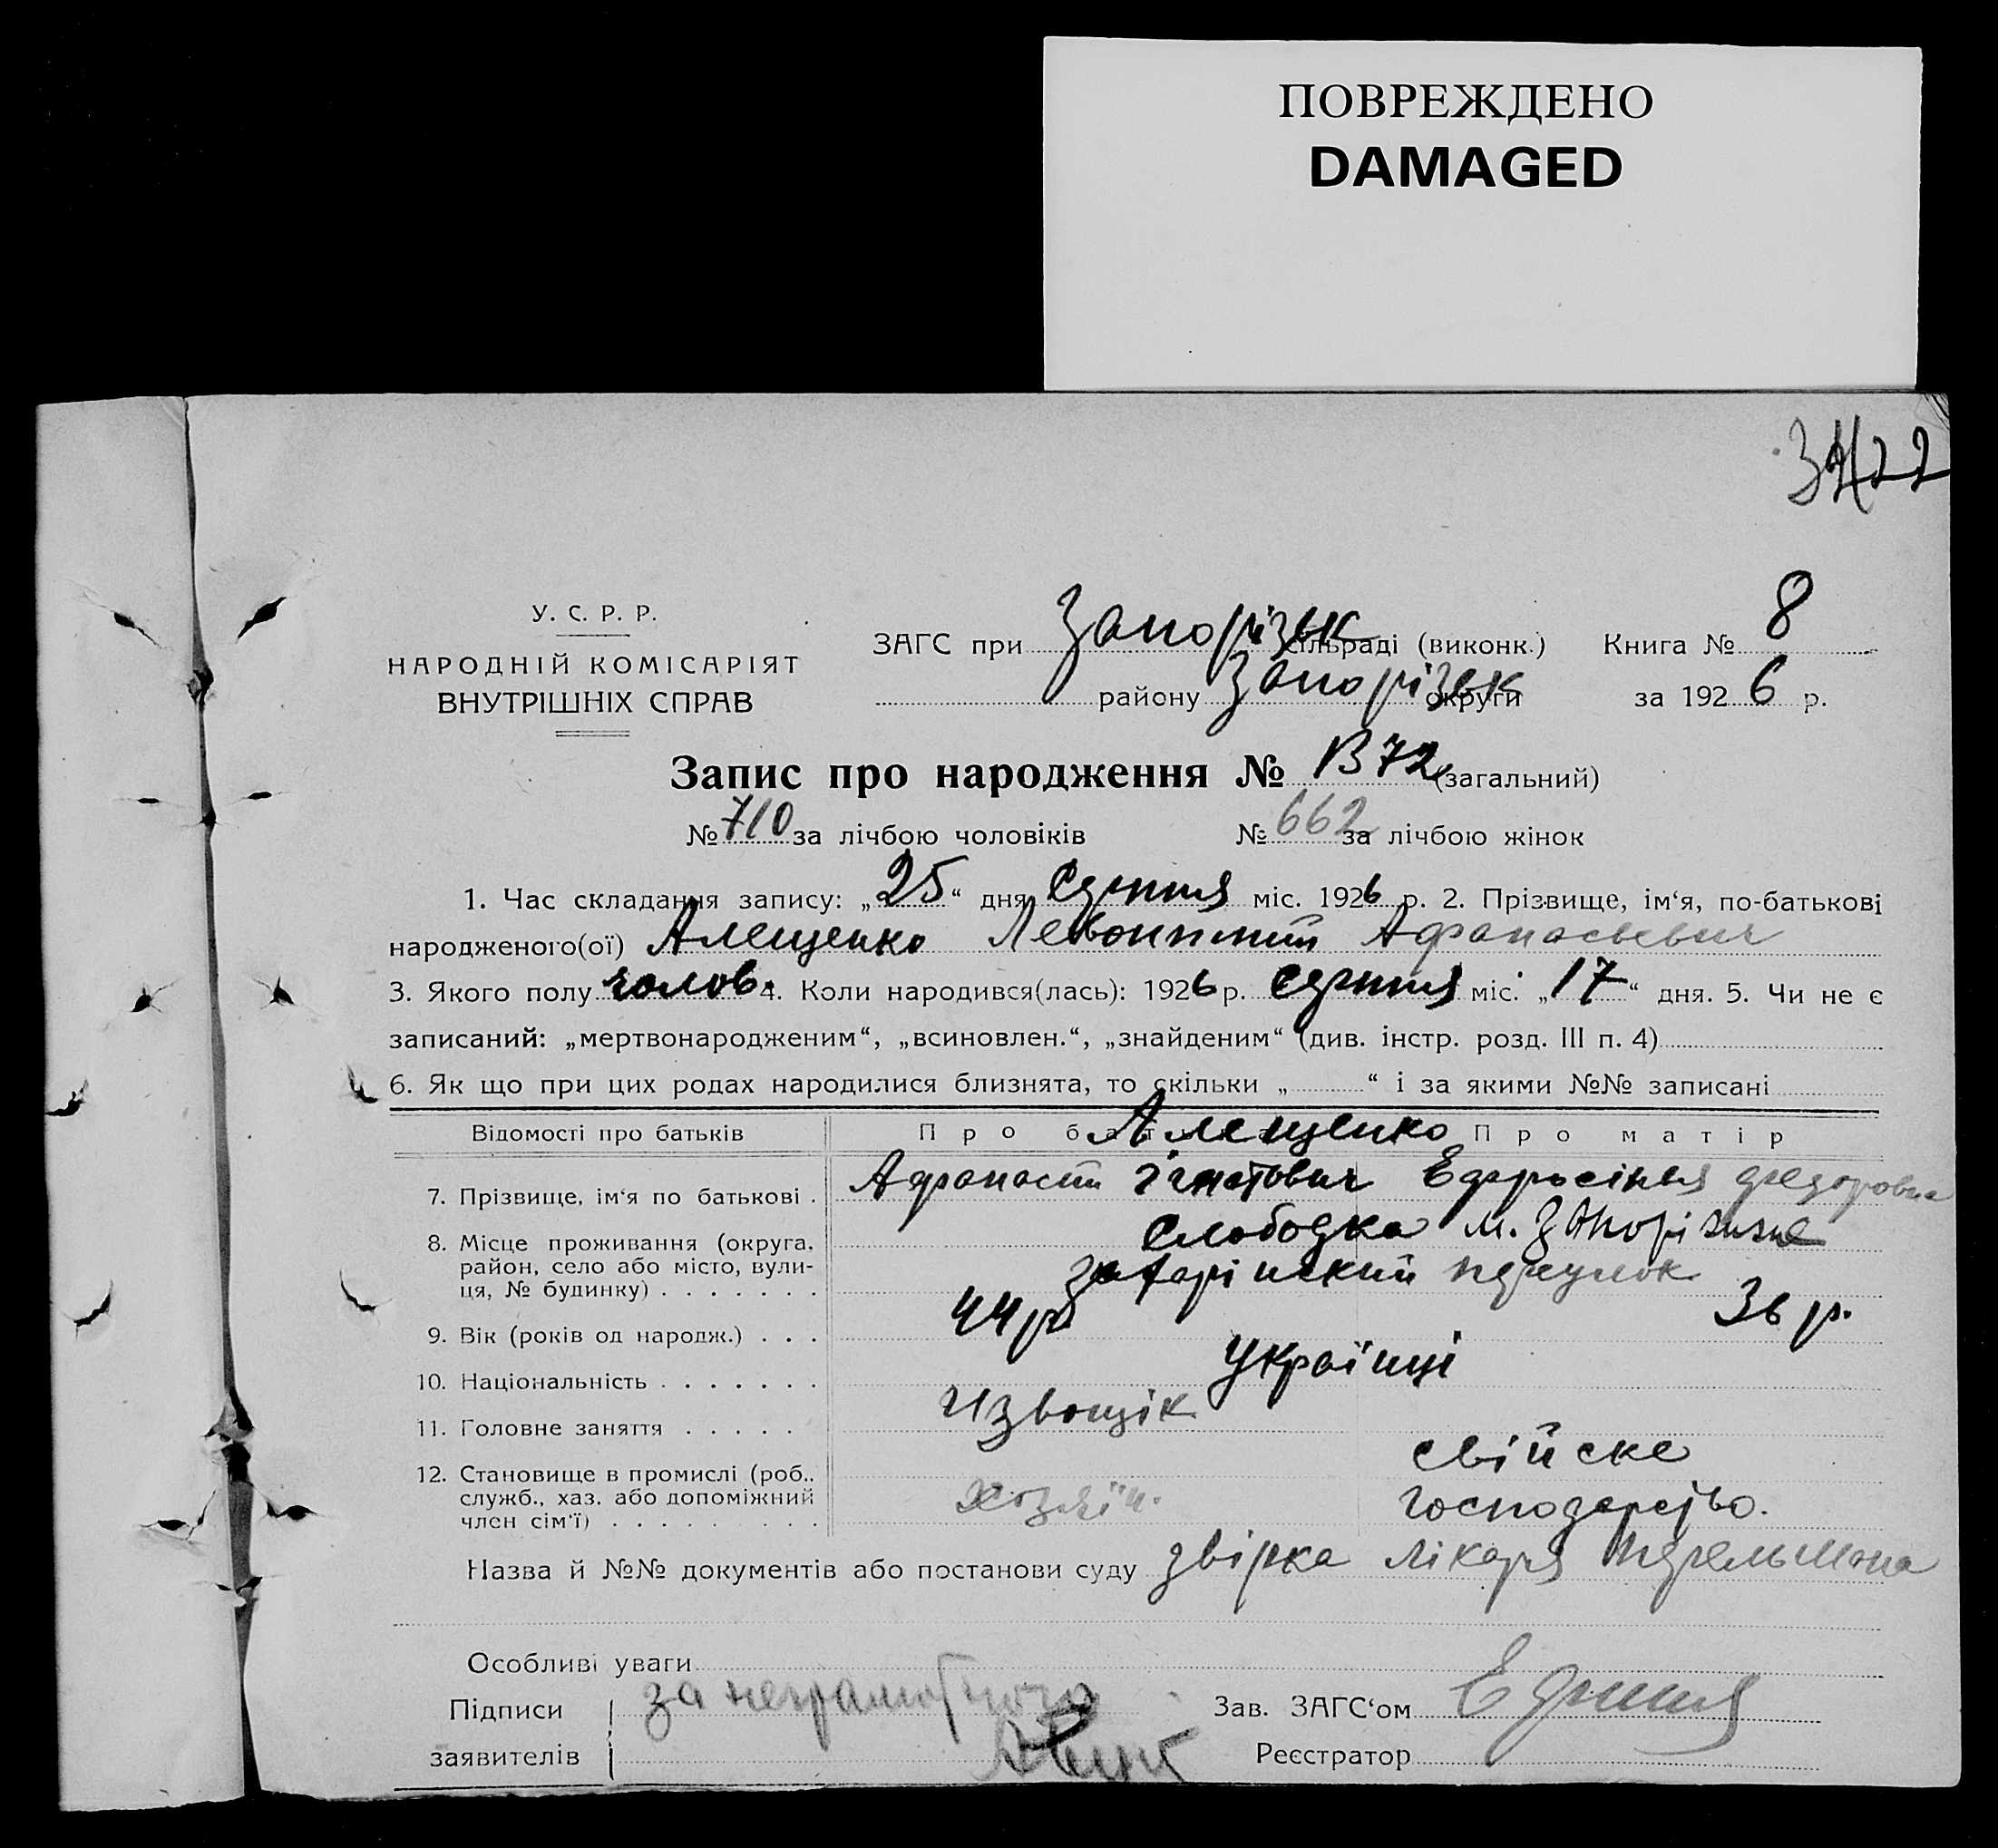 ПОВРЕЖДЕНО
DAMAGED
У. С. Р. Р.
НАРОДНІЙ КОМІСАРІЯТ
ВНУТРІШНІХ СПРАВ
ЗАГС при Запорізьк сільраді (виконк.) Книга № 8
району Запорізьк округи за 1926 р.
Запис про народження № 1372 (загальний)
№ 710 за лічбою чоловіків № 662 за лічбою жінок
1. Час складання запису: „25“ дня Серпня міс. 1926 р. 2. Прізвище, ім‘я, по-батькові
народженого(ої) Алещенко Афанасьевич
3. Якого полу чолов. 4. Коли народився(лась): 1926 р. Серпня міс. „17“ дня. 5. Чи не є
записаний: „мертвонародженим“, „всиновлен.“, „знайденим“ (див. інстр. розд. III п. 4)
6. Як що при цих родах народилися близнята, то скільки „ “ і за якими №№ записані
Відомості про батьків Про батька Алещенко Про матір
7. Прізвище, ім‘я по батькові . Афанасій Ігнатович Ефросінья Федоровна
8. Місце проживання (округа, Слободка м. Запоріжже
район, село або місто, вули-
ця, № будинку) . . . . . . . переулок
9. Вік (років од народж.) . . . 44 р 36 р.
10. Національність . . . . . . . Українці
11. Головне заняття . . . . . Извощік
свійске
12. Становище в промислі (роб.,
служб., хаз. або допоміжний хозяїн. господарство.
член сім‘ї) . . . . . . . . .
Назва й №№ документів або постанови суду звірка лікаря Перельмана
Особливі уваги
Підписи за неграмотного Зав. ЗАГС‘ом
заявителів Реєстратор